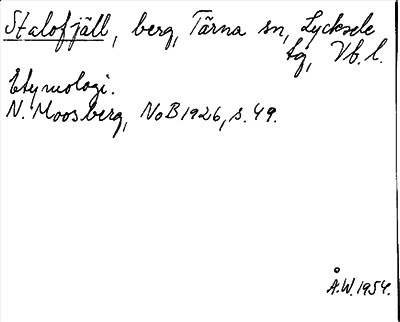 Stalofjäll, berg, Tärna sn, Lycksele
tg, Vb. l.
Etymologi.
N. Moosberg, NoB 1926, s. 49.
Å.W. 1954.